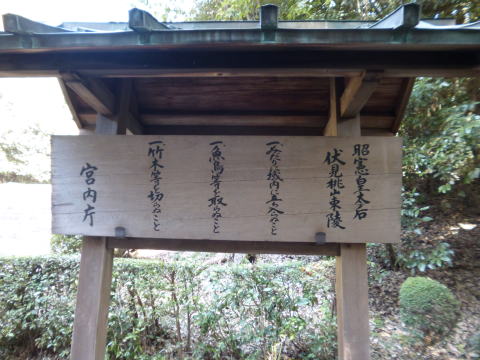 昭憲皇太后
伏見桃山東陵
一、みだりに域内に立ち入らぬこと
一、魚鳥等を取らぬこと
一、竹木等を切らぬこと
宮内庁